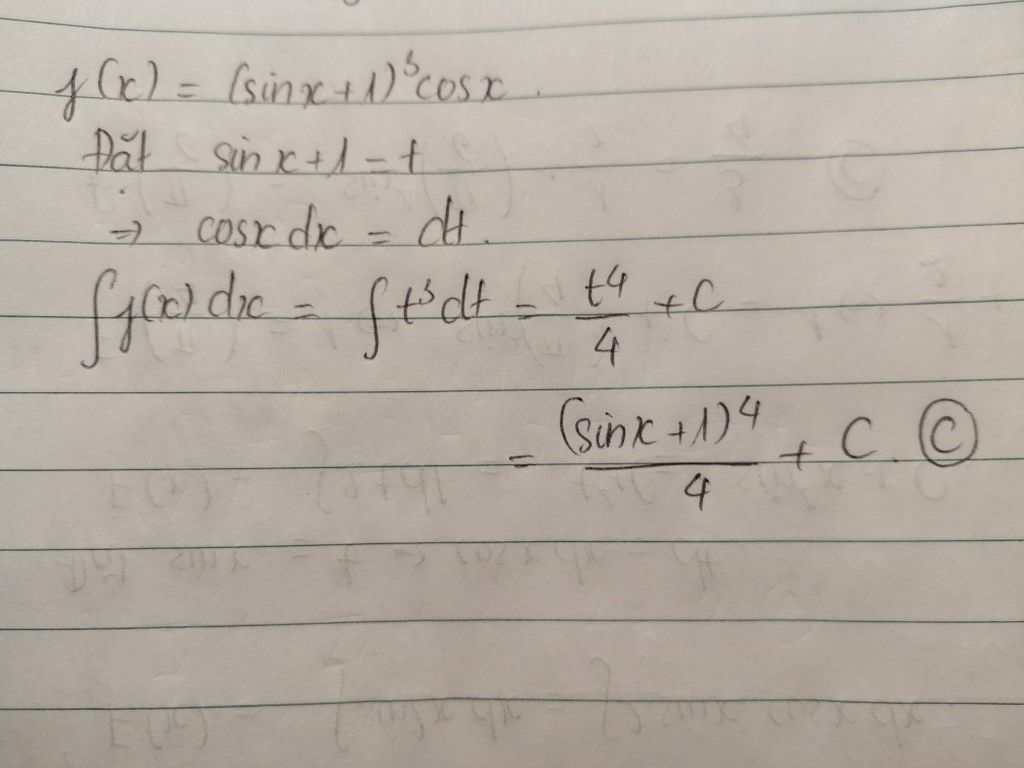 f(x) = (sinx+1)³cosx.
Đặt sinx+1 = t
⇒ cosx dx = dt.
∫f(x) dx = ∫t³dt = t⁴/4 + C
= (sinx+1)⁴/4 + C. Ⓒ